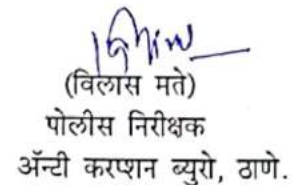 (विलास मते)
पोलीस निरीक्षक
ॲन्टी करप्शन ब्युरो, ठाणे.